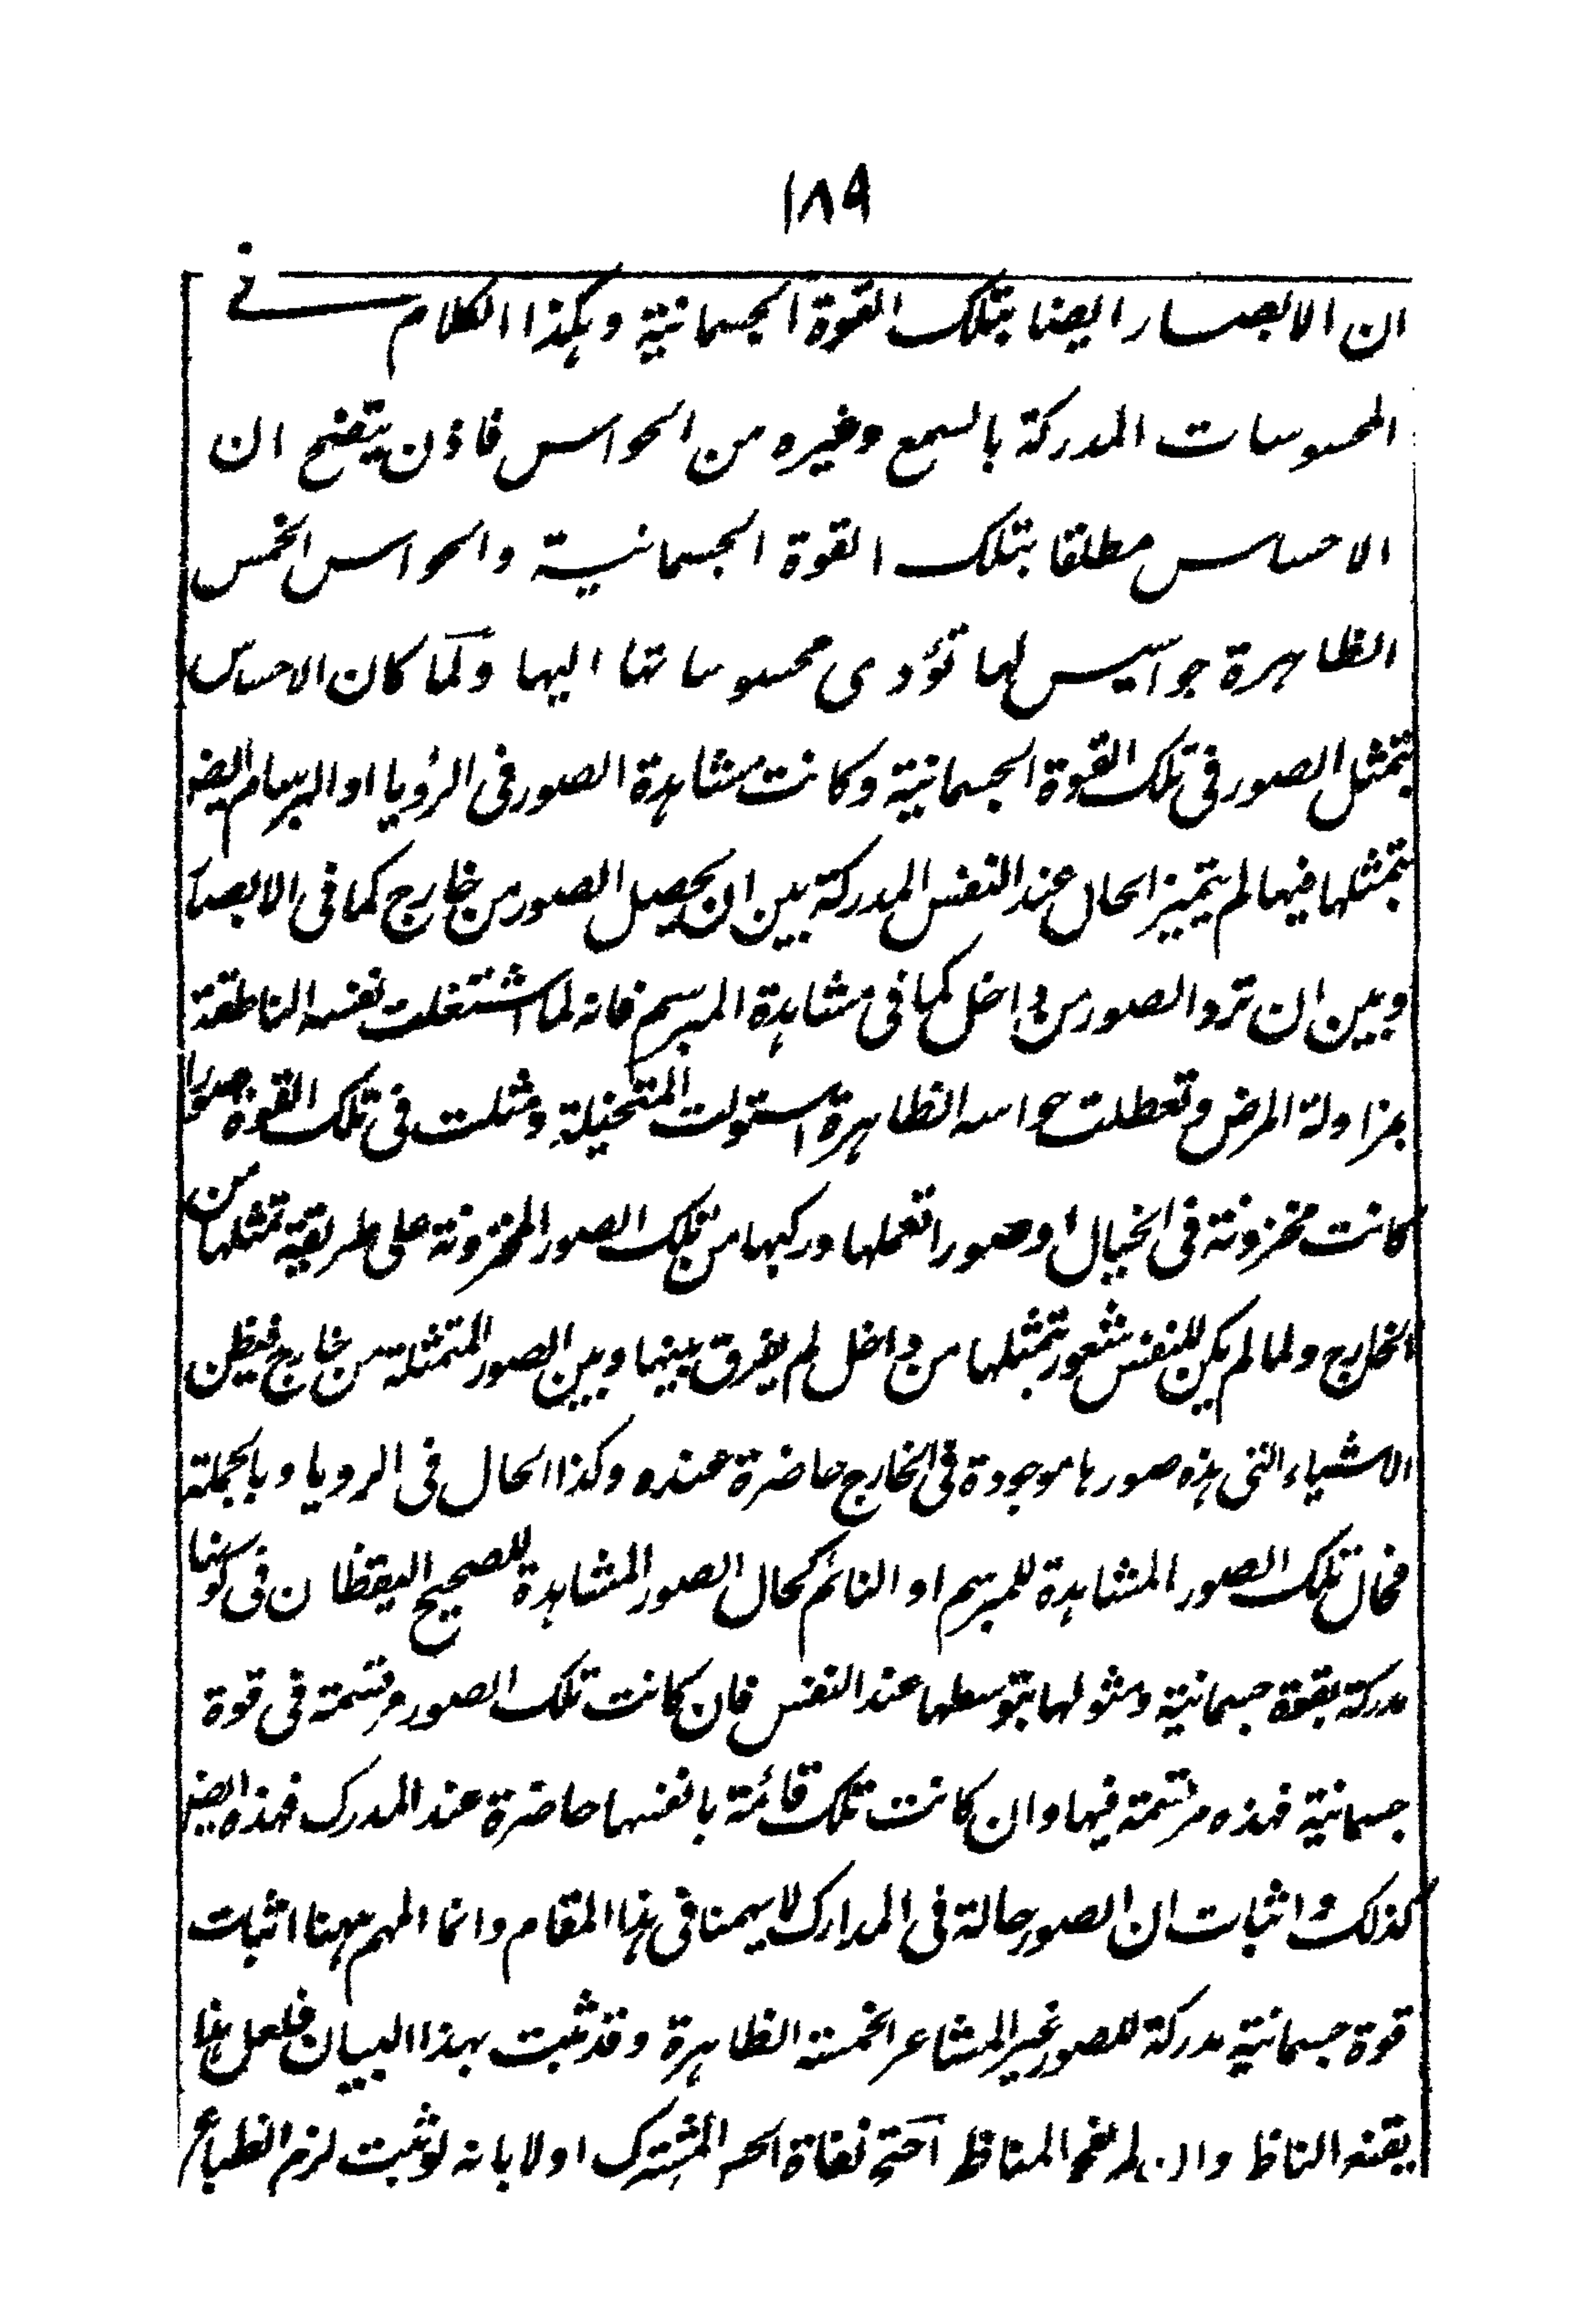 ١٨٩
ان الابصار ايضا بتلك القوة الجسمانية وهكذا الكلام فى
المحسوسات المدركة بالسمع وغيره من الحواس فاذن يتضح ان
الاحساس مطلقا بتلك القوة الجسمانية والحواس الخمس
الظاهرة جواسيس لها تؤدى محسوساتها اليها ولما كان الاحساس
بتمثل الصور فى تلك القوة الجسمانية وكانت مشاهدة الصور فى الرؤيا او البرسام ايضا
بتمثلها فيها لم يتميز الحال عند النفس المدركة بين ان يحصل الصور من خارج كما فى الابصار
وبين ان ترد الصور من داخل كما فى مشاهدة المبرسم فانه لما اشتغلت نفسه الناطقة
بمزاولة المرض وتعطلت حواسه الظاهرة استولت المتخيلة ومثلت فى تلك القوة صورا
كانت مخزونة فى الخيال او صورا تعملها وركبها من تلك الصور المخزونة على طريقة تمثلها من
الخارج ولما لم يكن للنفس شعور بتمثلها من داخل لم يفرق بينها وبين الصور المتمثلة من خارج فيظن
الاشياء التى هذه صورها موجودة فى الخارج حاضرة عنده وكذا الحال فى الرويا وبالجملة
فحال تلك الصور المشاهدة للمبرسم او النائم كحال الصور المشاهدة للصحيح اليقظان فى كونها
مدركة بقوة جسمانية ومثولها بتوسطها عند النفس فان كانت تلك الصور مرتسمة فى قوة
جسمانية فهذه مرتسمة فيها وان كانت تلك قائمة بانفسها حاضرة عند المدرك فهذه ايضا
كذلك واثبات ان الصور حالة فى المدارك لا يهمنا فى هذا المقام وانما المهم ههنا اثبات
قوة جسمانية مدركة للصور غير المشاعر الخمسة الظاهرة وقد ثبت بهذا البيان فلعل هذا
يقنع الناظر وان لم المناظر احتج نفاة الحس المشترك اولا بانه لو ثبت لزم انطباع